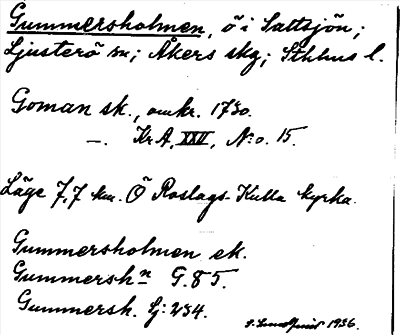 Gummersholmen, ö i Saltsjön;
Ljusterö sn; Åkers skg; Sthlms l.
Goman sk., omkr. 1730.
—. Kr A, XXII, N:o. 15.
Läge 7,7 km. Ö Roslags-Kulla kyrka.
Gummersholmen ek.
Gummershn G. 85.
Gummersh. Lj: 254.
1936.